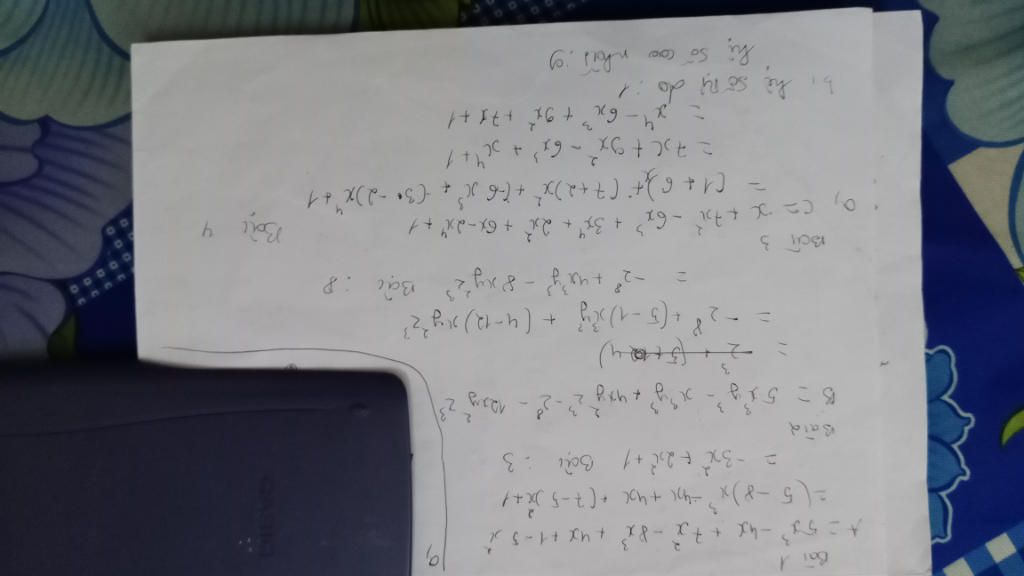 Bài 1
A = 5x³ - 4x + 7x² - 8x³ + 4x + 1 - 5x²
= (5 - 8)x³ - 4x + 4x + (7 - 5)x² + 1
= -3x² + 2x² + 1 Bậc : 3
Bài 2
B = 5x³y³ - x³y³ + 4xy²z³ - 2⁸ - 12xy²z³
= -2⁸ + (5 - 1)x³y³ + (4 - 12)xy²z³
= -2⁸ + 4x³y³ - 8xy²z³ Bậc : 8
Bài 3
a, C = x + 7x² - 6x³ + 3x⁴ + 2x² + 6x - 2x⁴ + 1
= (1 + 6)x + (7 + 2)x² + (-6x³ + (3 - 2)x⁴ + 1
= 7x + 9x² - 6x³ + x⁴ + 1
= x⁴ - 6x³ + 9x² + 7x + 1
Bậc 4
b, hệ số tự do : 1
hệ số cao nhất : 9
a,
CASIO